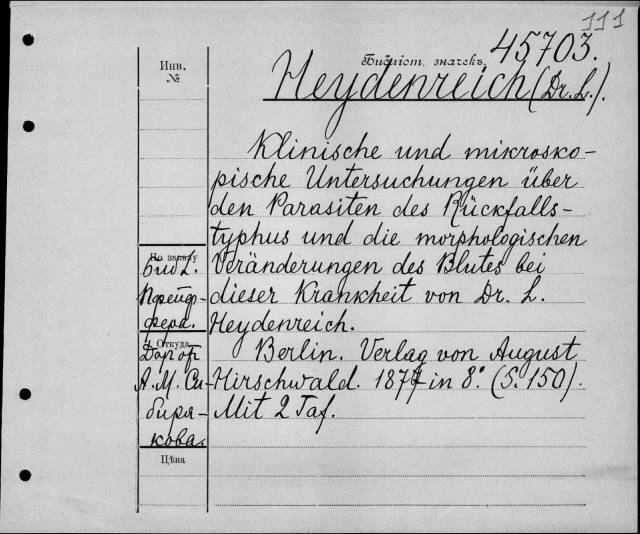 111
45703.
Инв.
№
Библіот. значекъ.
Heydenreich (Dr. L.).
Klinische und mikrosko-
pische Untersuchungen über
den Parasiten des Rückfalls-
typhus und die morphologischen
Veränderungen des Blutes bei
dieser Krankheit von Dr. L.
Heydenreich.
Berlin. Verlag von August
Hirschwald. 1877 in 8º (S. 150).
Mit 2 Taf.
По заказу
Библ.
Пфейф-
фера.
Откуда
Дар от
А. М. Си-
биря-
кова.
Цѣна